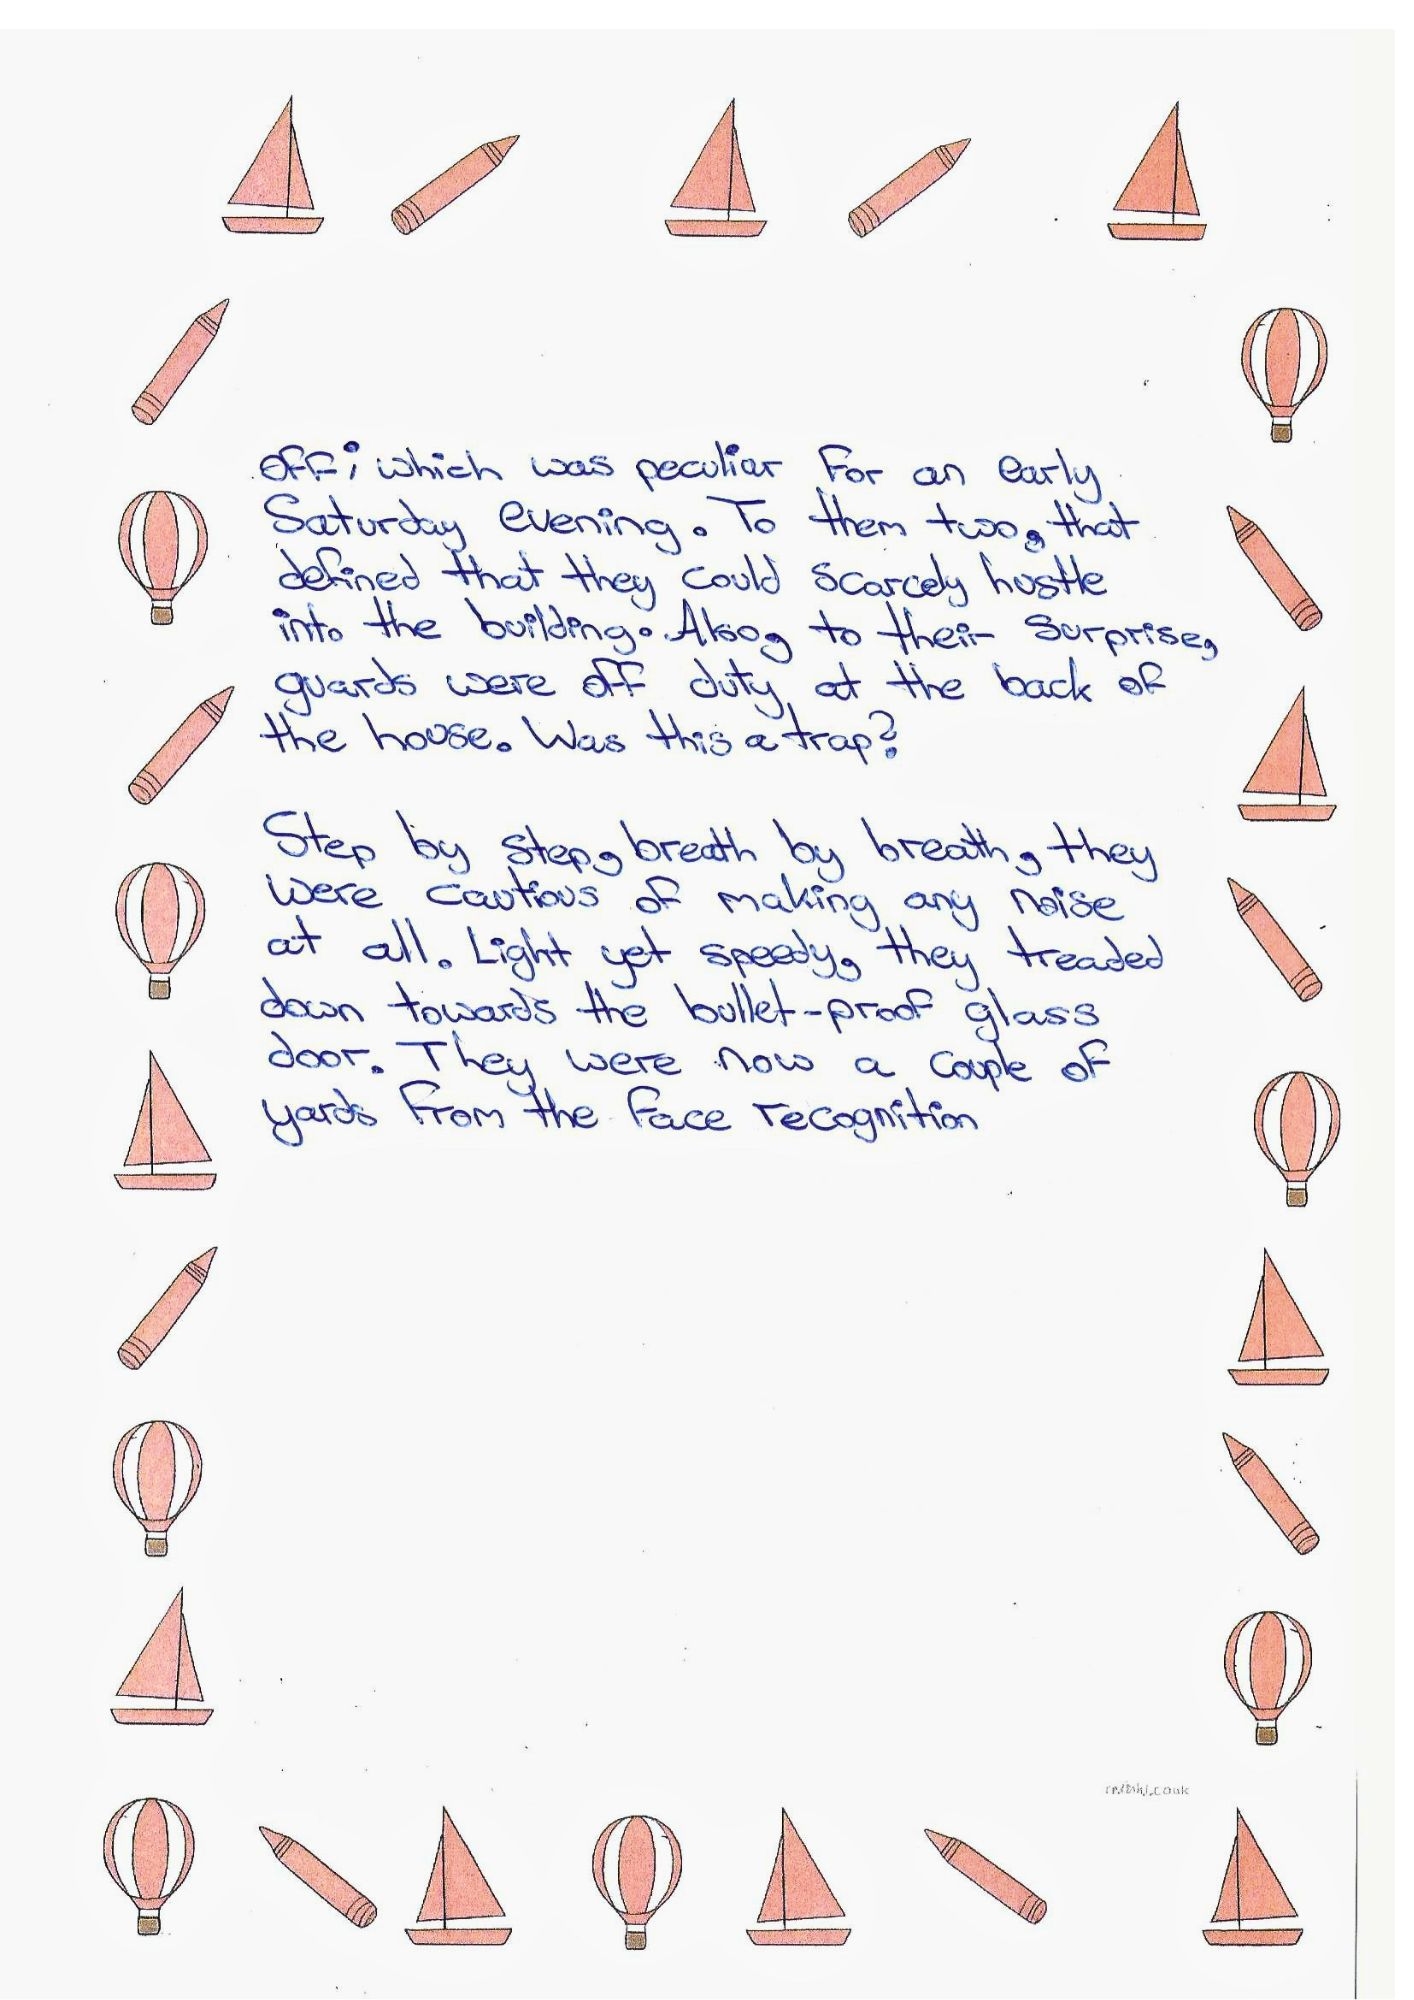 off; which was peculiar for an early
Saturday evening. To them two, that
defined that they could scarcely hustle
into the building. Also, to their surprise,
guards were off duty at the back of
the house. Was this a trap?
Step by step, breath by breath, they
were cautious of making any noise
at all. Light yet speedy, they treaded
down towards the bullet-proof glass
door. They were now a couple of
yards from the face recognition